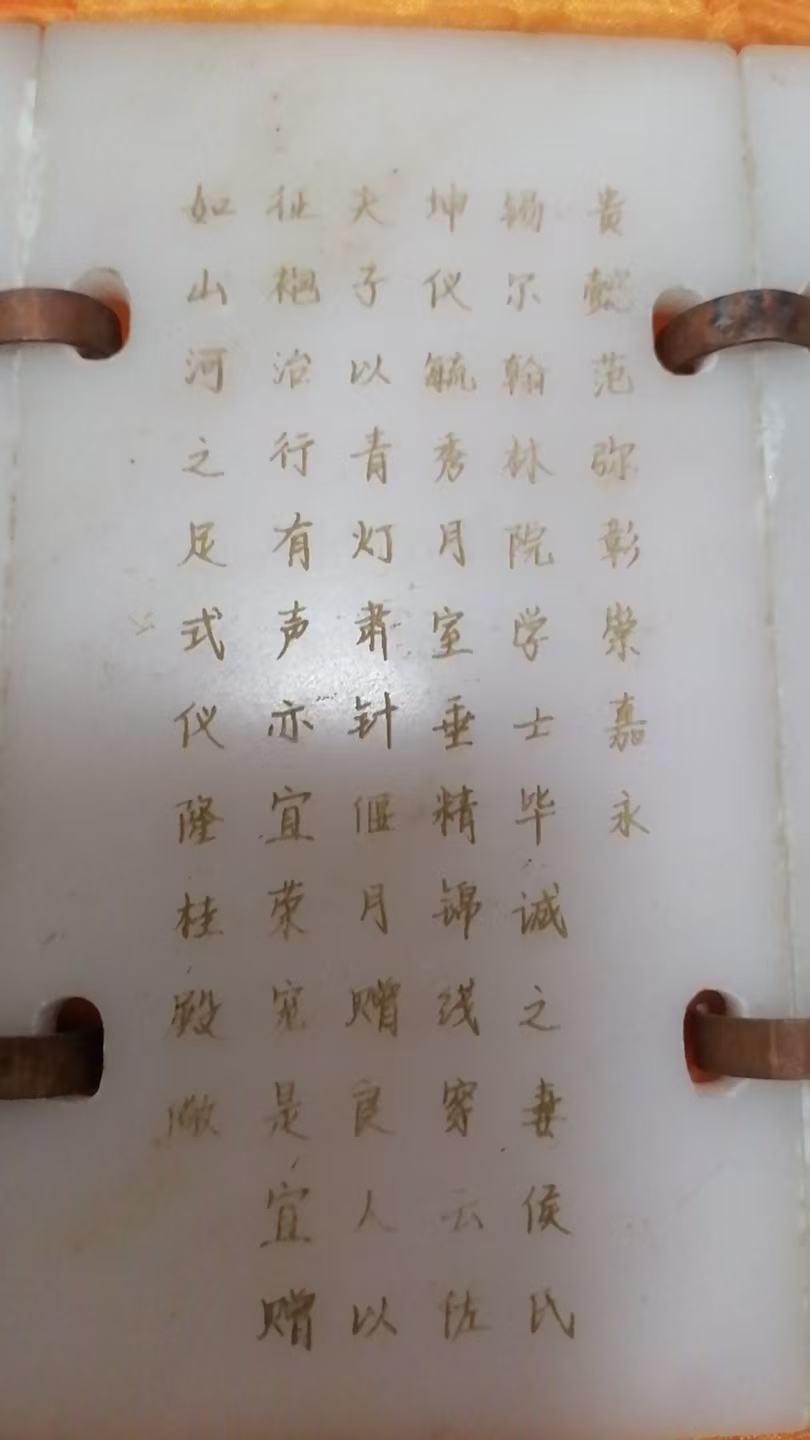 贵懿范弥彰荣嘉永
锡尔翰林院学士毕诚之妻侯氏
坤仪毓秀月室垂精锦线穿云佐
夫子以青灯肃针偃月赠良人以
征袍治行有声亦宜荣宠是宜赠
如山河之足式仪隆桂殿